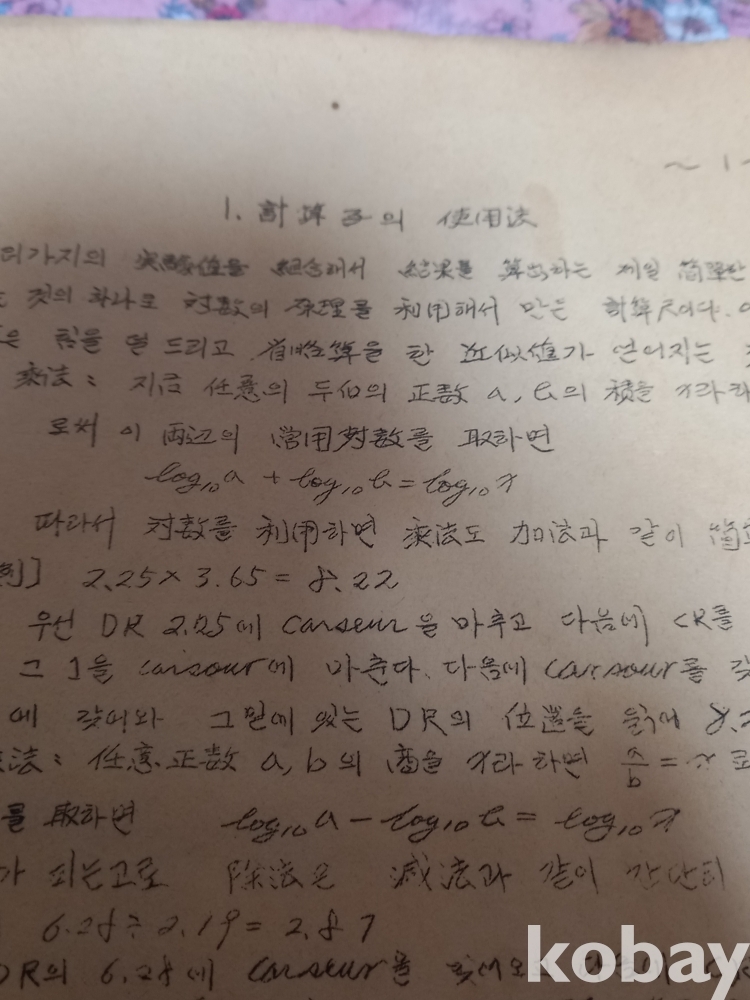 ~ 1 ~
1. 計算子의 使用法
러가지의 実験値를 組合해서 結果를 算出하는 제일 簡單한
것의 하나로 対数의 原理를 利用해서 만든 計算尺이다.
을 덜 드리고 省略算을 한 近似値가 얻어지는
乘法: 지금 任意의 두 개의 正数 a, b의 積을 x라
로써 이 兩辺의 常用対数를 取하면
log₁₀a + log₁₀b = log₁₀x
따라서 対数를 利用하면 乘法도 加法과 같이
例] 2.25 × 3.65 = 8.22
우선 DR 2.25에 carseur을 마추고 다음에 CR를
그 1을 carsour에 마춘다. 다음에 carsour를
에 갖어와 그 밑에 있는 DR의 位置을 읽어
法: 任意 正数 a, b의 商을 x라 하면 a/b = x 로
를 取하면 log₁₀a − log₁₀b = log₁₀x
가 되는고로 除法은 減法과 같이 간단히
6.28 ÷ 2.19 = 2.87
DR의 6.28에 carseur을
kobay